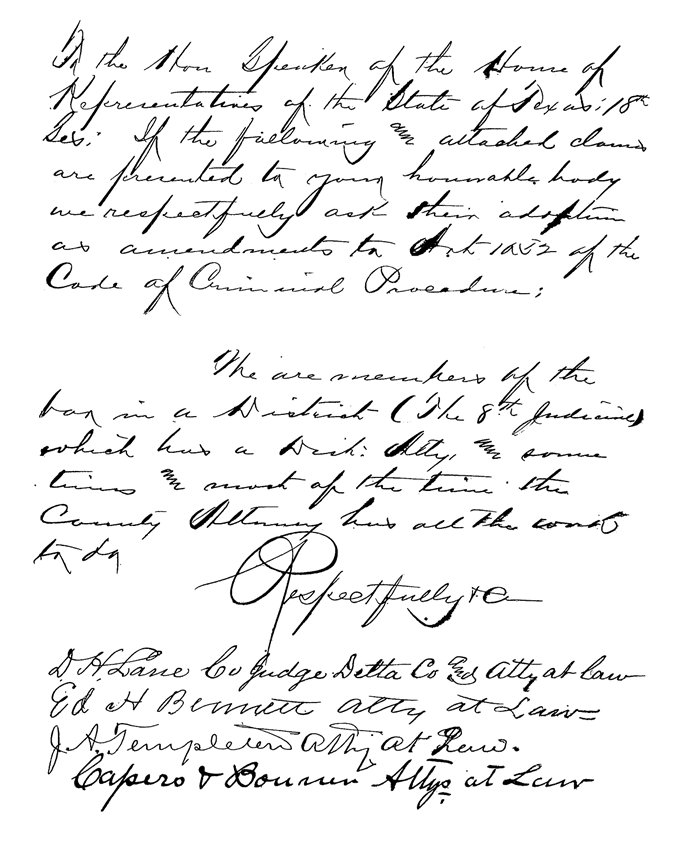 To the Hon Speaker of the House of
Representatives of the State of Texas: 18th
Ses: If the following and attached claims
are presented to your honorable body
we respectfully ask their adoption
as amendments to Art 1052 of the
Code of Criminal Procedure;
We are members of the
bar in a District (The 8th Judicial)
which has a Dist: Atty, and some
times and most of the time the
County Attorney has all the work
to do
Respectfully &c
D. H. Lane Co Judge Delta Co and Atty at Law
Ed H Bennett atty at Law
J. A. Templeton Atty at Law.
& Attys at Law